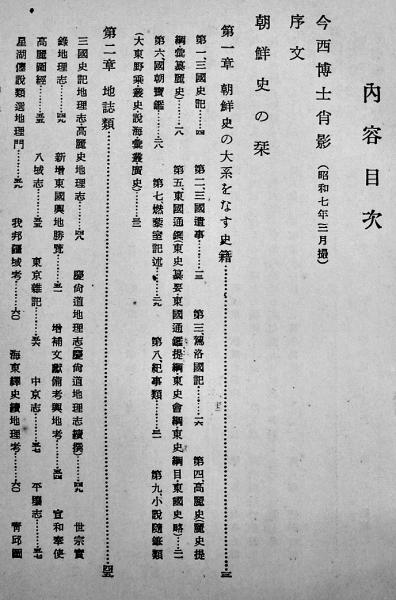 內容目次
今西博士肖影（昭和七年三月撮）
序文
朝鮮史の栞
第一章 朝鮮史の大系をなす史籍……三
第一、三國史記……四 第二、三國遺事……三 第三、駕洛國記……一六 第四、高麗史(麗史提
綱彙纂麗史)……一八 第五、東國通鑑(東史纂要・東國通鑑提綱・東史會綱・東史綱目・東國史略)……二一
第六國朝寶鑑……六 第七、燃藜室記述……二九 第八、紀事類……三一 第九、小說隨筆類
(大東野乘叢史・說海彙叢廣史)……三三
第二章 地誌類……四五
三國史記地理志・高麗史地理志……四八 慶尙道地理志(慶尙道地理志續撰)……四九 世宗實
錄地理志……四九 新增東國輿地勝覽……五一 增補文獻備考輿地考……五四 宣和奉使
高麗圖經……五五 八域志……五五 東京雜記……五六 中京志……五七 平壤志……五七
星湖僿說類選地理門……五九 我邦疆域考……六〇 海東繹史續地理考……六〇 靑邱圖